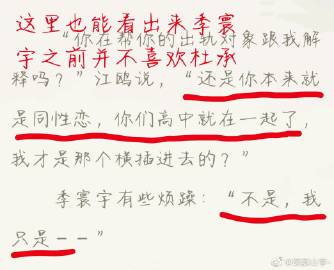 这里也能看出来季寰
宇之前并不喜欢杜承
“你在帮你的出轨对象跟我解
释吗？”江鸥说，“还是你本来就
是同性恋，你们高中就在一起了，
我才是那个横插进去的？”
季寰宇有些烦躁：“不是，我
只是——”